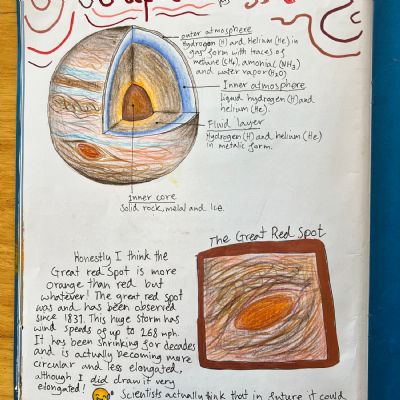 outer atmosphere
Hydrogen (H) and Helium (He) in
gas form with traces of
methane (CH₄), amonia (NH₃)
and water vapor (H₂O)
Inner atmosphere
Liquid hydrogen (H) and
helium (He).
Fluid layer
Hydrogen (H) and helium (He)
in metalic form.
Inner core
Solid rock, metal and Ice.
The Great Red Spot
Honestly I think the
Great red Spot is more
orange than red but
whatever! The great red spot
was and has been observed
since 1831. This huge storm has
wind speeds of up to 268 mph.
It has been shrinking for decades
and is actually becoming more
circular and less elongated,
although I did draw it very
elongated!
Scientists actually think that in future it could